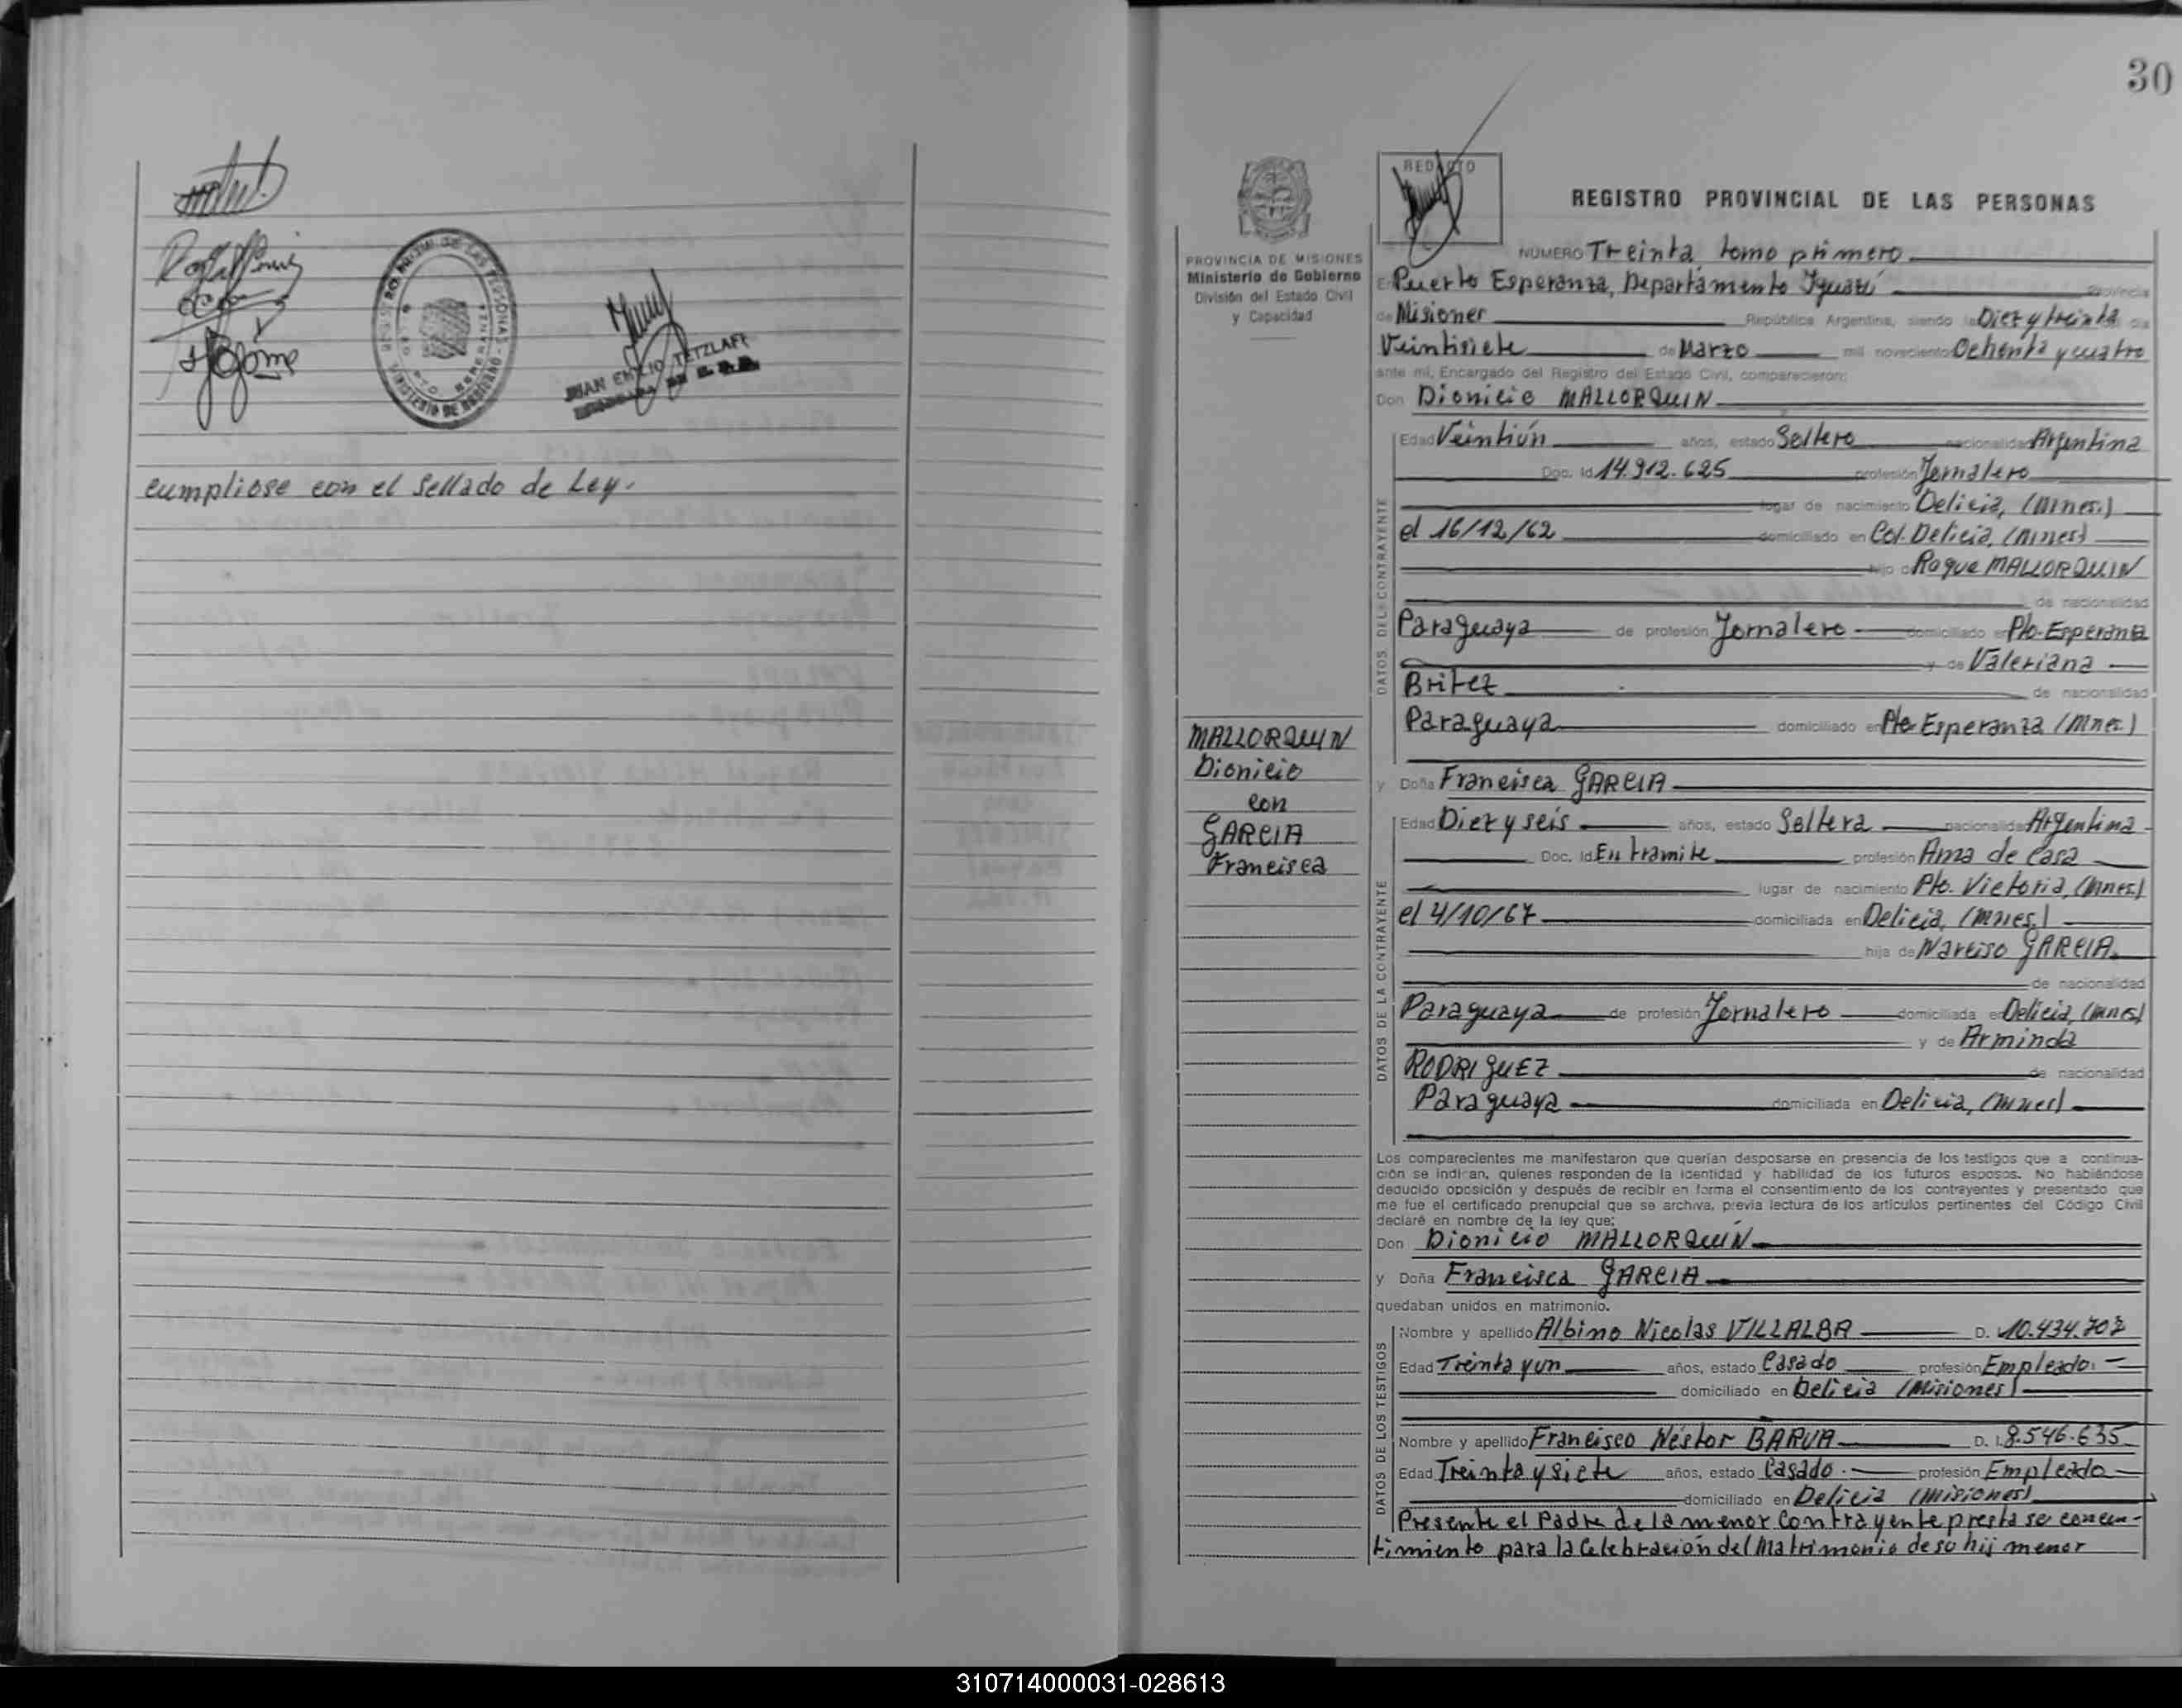 cumpliose con el Sellado de Ley.
REGISTRO PROVINCIAL DE LAS PERSONAS
MINISTERIO DE GOBIERNO
PTO. ESPERANZA
JUAN EMILIO TETZLAFF
30
REDACTO
REGISTRO PROVINCIAL DE LAS PERSONAS
PROVINCIA DE MISIONES
Ministerio de Gobierno
División del Estado Civil
y Capacidad
NUMERO Treinta tomo primero
En Puerto Esperanza, Departamento Iguazú Provincia
de Misiones República Argentina, siendo la Diez y treinta día
Veintisiete de Marzo mil novecientos Ochenta y cuatro
ante mí, Encargado del Registro del Estado Civil, comparecieron:
Don Dionicio MALLORQUIN
DATOS DEL CONTRAYENTE
Edad Veintiún años, estado Soltero nacionalidad Argentina
Doc. Id 14.912.625 profesión Jornalero
lugar de nacimiento Delicia, (Mnes.)
el 16/12/62 domiciliado en Col. Delicia, (Mnes)
hijo de Roque MALLORQUIN
de nacionalidad
Paraguaya de profesión Jornalero domiciliado en Pto. Esperanza
y de Valeriana
Britez de nacionalidad
Paraguaya domiciliado en Pto Esperanza (Mnes.)
MALLORQUIN
Dionicio
con
GARCIA
Francisca
y Doña Francisca GARCIA
DATOS DE LA CONTRAYENTE
Edad Diez y seis años, estado Soltera nacionalidad Argentina
Doc. Id En tramite profesión Ama de Casa
lugar de nacimiento Pto. Victoria, (Mnes.)
el 4/10/67 domiciliada en Delicia, (Mnes.)
hija de Narciso GARCIA
de nacionalidad
Paraguaya de profesión Jornalero domiciliada en Delicia, (Mnes)
y de Arminda
RODRIGUEZ de nacionalidad
Paraguaya domiciliada en Delicia, (Mnes)
Los comparecientes me manifestaron que querían desposarse en presencia de los testigos que a continua-
ción se indican, quienes responden de la identidad y habilidad de los futuros esposos. No habiéndose
deducido oposición y después de recibir en forma el consentimiento de los contrayentes y presentado que
me fue el certificado prenupcial que se archiva, previa lectura de los artículos pertinentes del Código Civil
declaré en nombre de la ley que:
Don Dionicio MALLORQUIN
y Doña Francisca GARCIA
quedaban unidos en matrimonio.
DATOS DE LOS TESTIGOS
Nombre y apellido Albino Nicolas VILLALBA D. I. 10.434.702
Edad Treinta y un años, estado Casado profesión Empleado
domiciliado en Delicia (Misiones)
Nombre y apellido Francisco Néstor BARUA D. I. 8.546.635
Edad Treinta y siete años, estado Casado profesión Empleado
domiciliado en Delicia (Misiones)
Presente el Padre de la menor Contrayente presta se concen-
timiento para la Celebración del Matrimonio de su hij menor
310714000031-028613